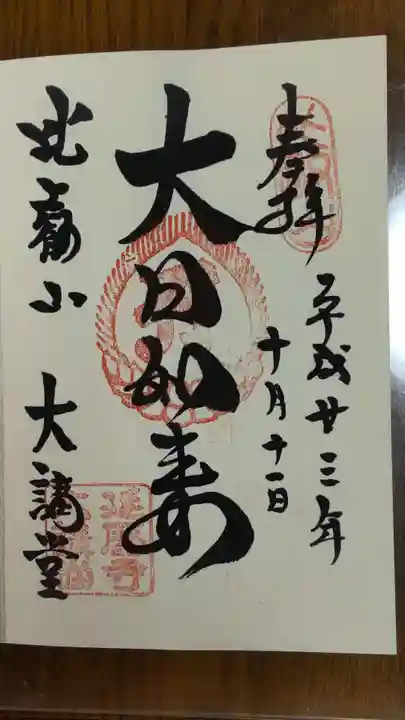 奉拝
平成廿三年
十月十一日
大日如来
比叡山 大講堂
延暦寺